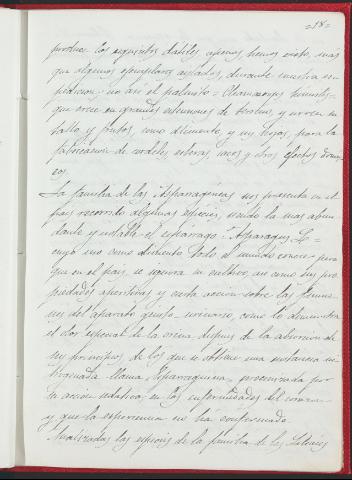 =18=
produce los exquisitos datiles, apenas hemos visto, mas
que algunos ejemplares aislados, durante nuestra es-
pedicion; no asi el palmito = Chamaerops humilis,=
que crece en grandes estensiones de terreno, y sirven su
tallo y frutos, como alimento, y sus hojas, para la
fabricacion de cordeles, esteras, sacos y otros efectos domes-
cos.
La familia de las Asparragineas nos presenta en el
pais recorrido algunas especies, siendo la mas abun-
dante y notable el esparrago = Asparagus, L.=
cuyo uso como alimento todo el mundo conoce pero
que en el pais, se ignora su cultivo, asi como sus pro-
piedades aperitivas y cierta accion sobre las funcio-
nes del aparato genito urinario, como lo demuestra
el olor especial de la orina despues de la absorcion de
sus principios de los que se obtiene una sustancia
llamada Asparraguina, preconizada por
su accion sedativa, en las enfermedades del corazon
y que la esperiencia no ha confirmado.
Analizadas las especies de la familia de las